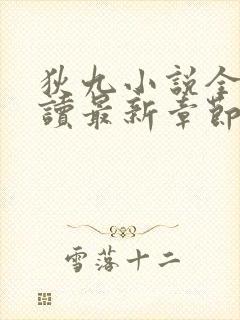 狄九小説全
讀最新章節
雪落十二